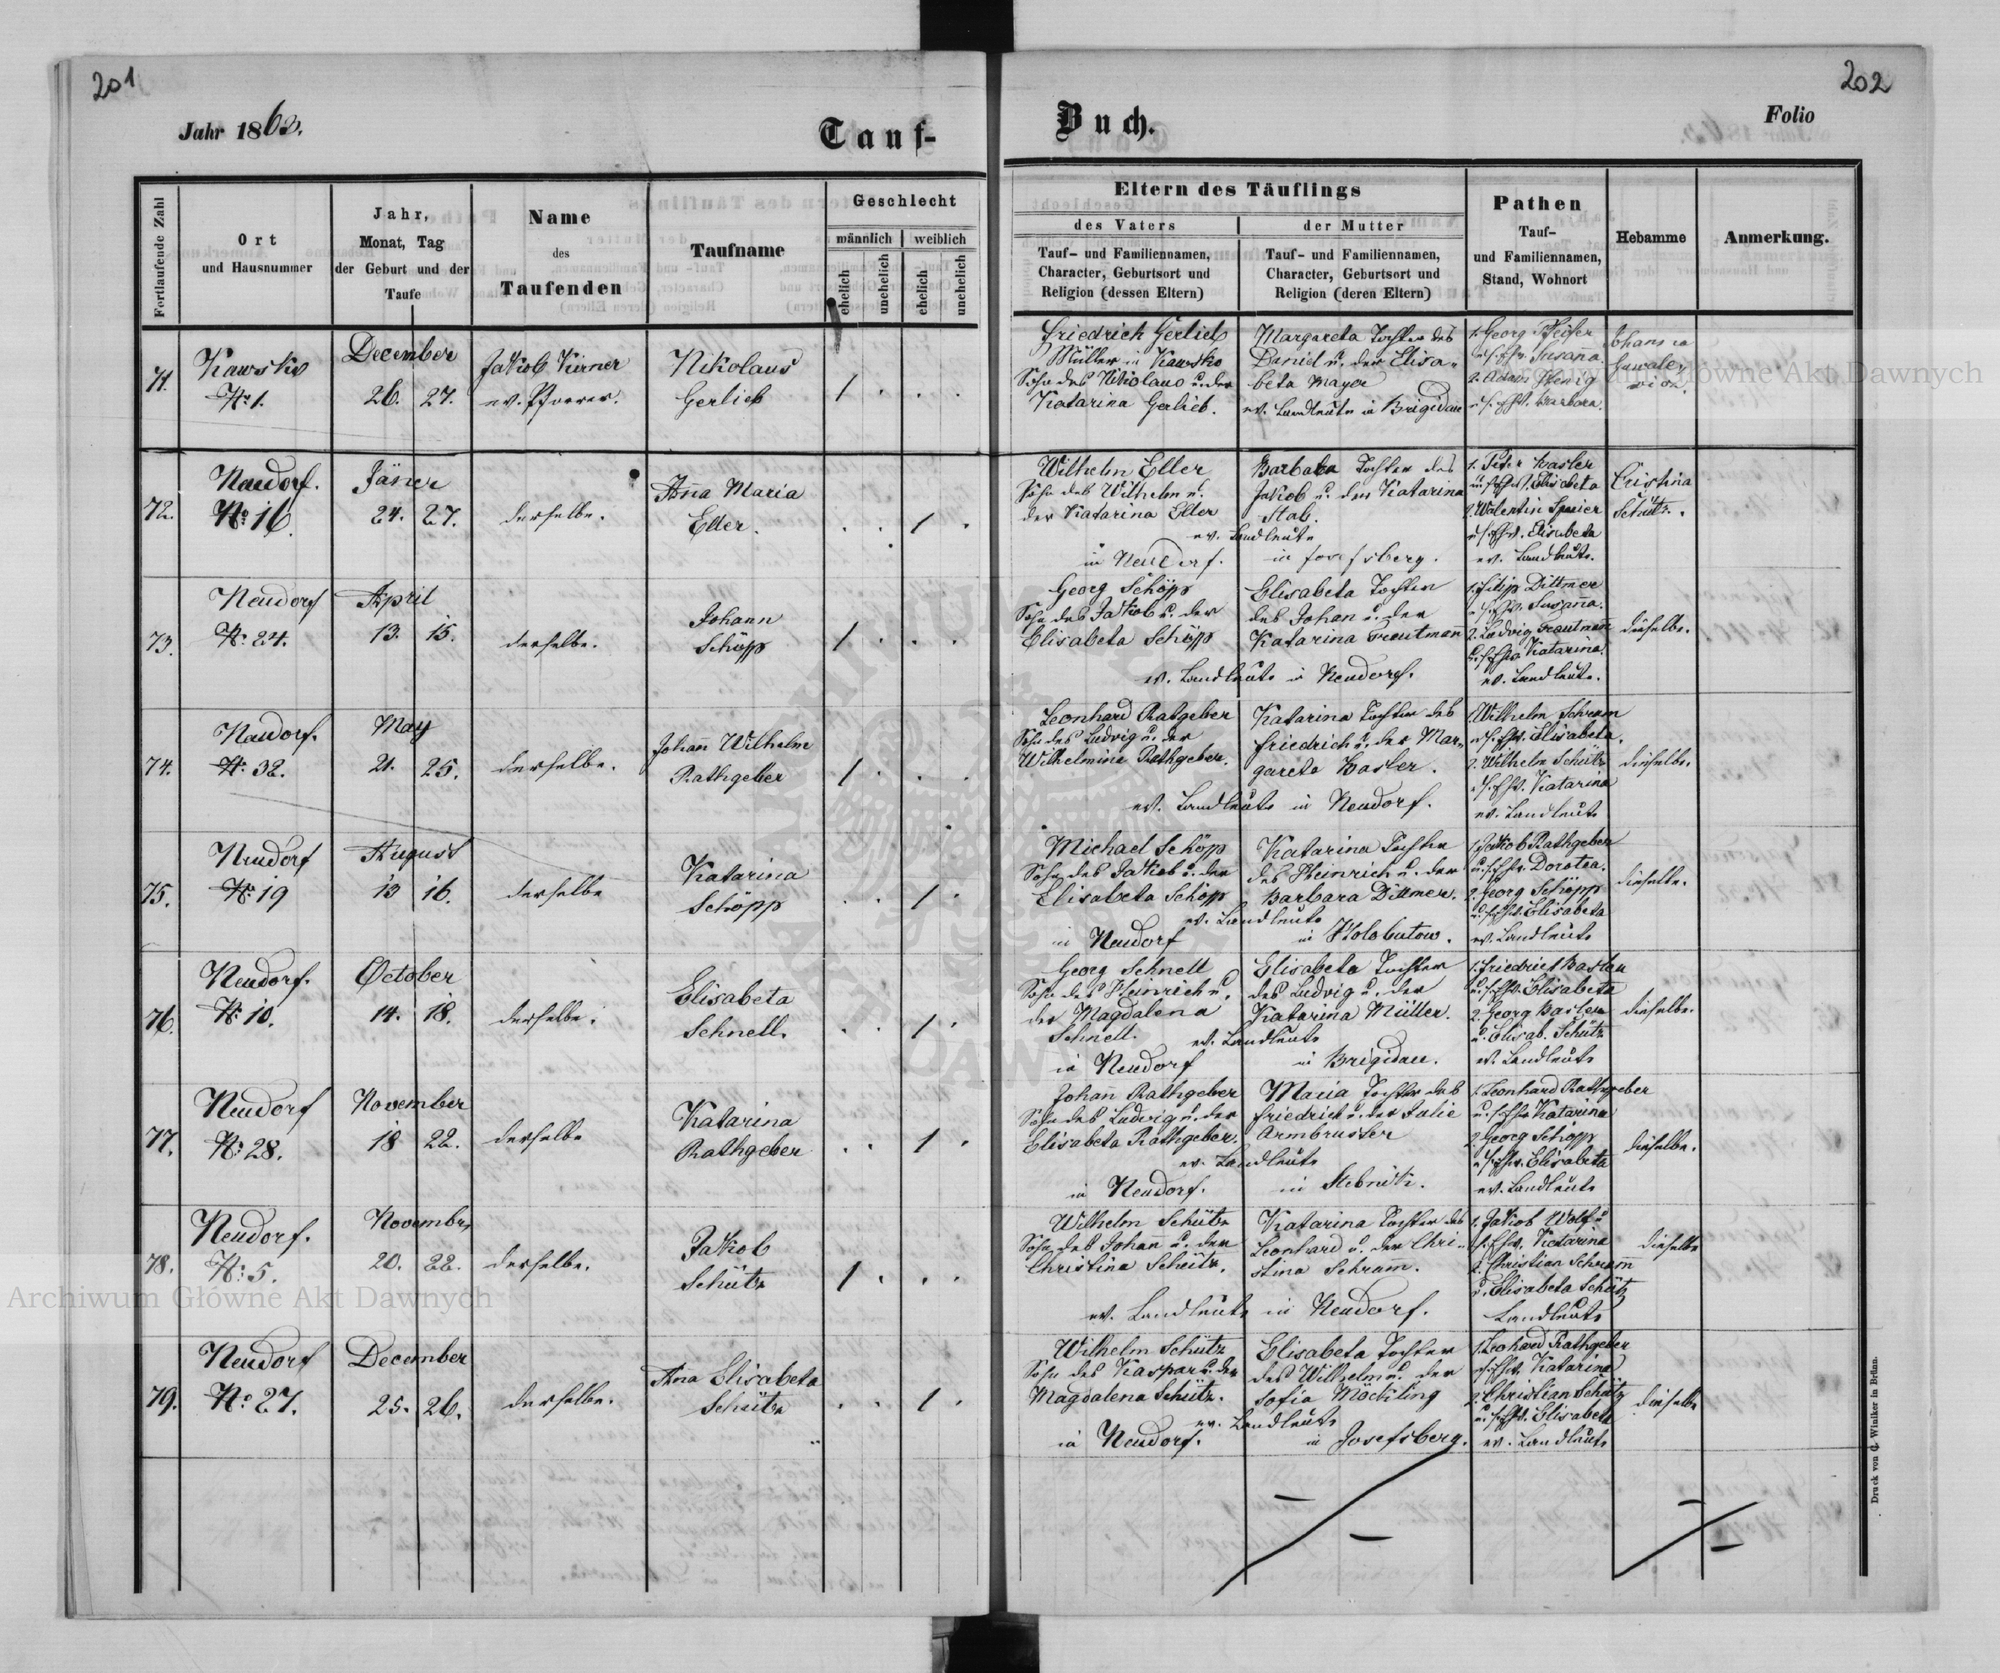 201
202
Jahr 1860.
Tauf-
Buch.
Folio
Fortlaufende Zahl
Ort
und Hausnummer
Jahr,
Monat, Tag
der Geburt und der
Taufe
Name
des
Taufenden
Taufname
Geschlecht
männlich
weiblich
ehelich
unehelich
ehelich
unehelich
Eltern des Täuflings
des Vaters
der Mutter
Tauf- und Familiennamen,
Character, Geburtsort und
Religion (dessen Eltern)
Tauf- und Familiennamen,
Character, Geburtsort und
Religion (deren Eltern)
Pathen
Tauf-
und Familiennamen,
Stand, Wohnort
Hebamme
Anmerkung.
71.
Kawsko
No 1.
December
26. 27.
Jakob Kirner
ev. Pfarrer.
Nikolaus
Gerlieb
1 . . .
Friedrich Gerlieb
Müller in Kawsko
Sohn des Nikolaus u. der
Katarina Gerlieb.
Margareta Tochter des
Daniel u. der Elisa-
beta Mayer
ev. Landleute in Brigidau
1. Georg Pfeifer
Susanna
2. Adam
Barbara.
Johanna
72.
Neudorf.
No 16
Jäner
24. 27.
derselbe.
Anna Maria
Eller.
. . 1 .
Wilhelm Eller
Sohn des Wilhelm u.
der Katarina Eller
ev. Landleute
in Neudorf.
Barbara Tochter des
Jakob u. der Katarina
Stab.
in Josefsberg.
1. Peter Basler
Elisabeta
2. Valentin
Elisabeta
ev. Landleute.
Cristina
Schütz.
73.
Neudorf
No 24.
April
13. 15.
derselbe.
Johann
Schöpp
1 . . .
Georg Schöpp
Sohn des Jakob u. der
Elisabeta Schöpp
ev. Landleute in Neudorf.
Elisabeta Tochter
des Johan u. der
Katarina Trautmann
1. Filip Dittmer
Susanna.
2. Ludvig Trautmann
Katarina.
ev. Landleute.
dieselbe.
74.
Neudorf.
No 32.
May
21. 25.
derselbe.
Johann Wilhelm
Rathgeber
1 . . .
Leonhard Ratgeber
Sohn des Ludvig u. der
Wilhelmine Rathgeber.
ev. Landleute in Neudorf.
Katarina Tochter des
Friedrich u. der Mar-
gareta Basler.
1. Wilhelm Schram
Elisabeta.
2. Wilhelm Schütz
Katarina
ev. Landleute
dieselbe.
75.
Neudorf
No 19
August
13 16.
derselbe
Katarina
Schöpp
. . 1 .
Michael Schöpp
Sohn des Jakob u. der
Elisabeta Schöpp
ev. Landleute
in Neudorf
Katarina Tochter
des Heinrich u. der
Barbara Dittmer.
in Holobutow.
1. Jakob Rathgeber
Dorotea.
2. Georg Schöpp
Elisabeta
ev. Landleute
dieselbe.
76.
Neudorf.
No 10.
October
14. 18.
derselbe.
Elisabeta
Schnell.
. . 1 .
Georg Schnell
Sohn des Heinrich u.
der Magdalena
Schnell. ev. Landleute
in Neudorf
Elisabeta Tochter
des Ludvig u. der
Katarina Müller.
in Brigidau.
1. Friedrich Basler
Elisabeta
2. Georg Basler
u. Elisab. Schütz
ev. Landleute
dieselbe.
77.
Neudorf
No 28.
November
18 22.
derselbe
Katarina
Rathgeber
. . 1 .
Johann Rathgeber
Sohn des Ludvig u. der
Elisabeta Rathgeber.
ev. Landleute
in Neudorf.
Maria Tochter des
Friedrich u. der Julie
Armbruster
in Stebnik.
1. Leonhard Rathgeber
Katarina
2. Georg Schöpp
Elisabeta
ev. Landleute
dieselbe.
78.
Neudorf.
No 5.
November
20. 22.
derselbe.
Jakob
Schütz
1 . . .
Wilhelm Schütz
Sohn des Johan u. der
Christina Schütz.
ev. Landleute in Neudorf.
Katarina Tochter des
Leonhard u. der Chri-
stina Schram.
1. Jakob Wolf u
Katarina
2. Christian Schramm
u. Elisabeta Schütz
Landleute
dieselbe
79.
Neudorf
No 27.
December
25. 26.
derselbe.
Anna Elisabeta
Schütz
. . 1 .
Wilhelm Schütz
Sohn des Kaspar u. der
Magdalena Schütz.
ev. Landleute
in Neudorf.
Elisabeta Tochter
des Wilhelm u. der
Sofia Möckling
in Josefsberg.
1. Leohard Rathgeber
Katarina
2. Christian Schütz
Elisabeta
ev. Landleute
dieselbe
Druck von C. Winiker in Brünn.
Archiwum Główne Akt Dawnych
Archiwum Główne Akt Dawnych